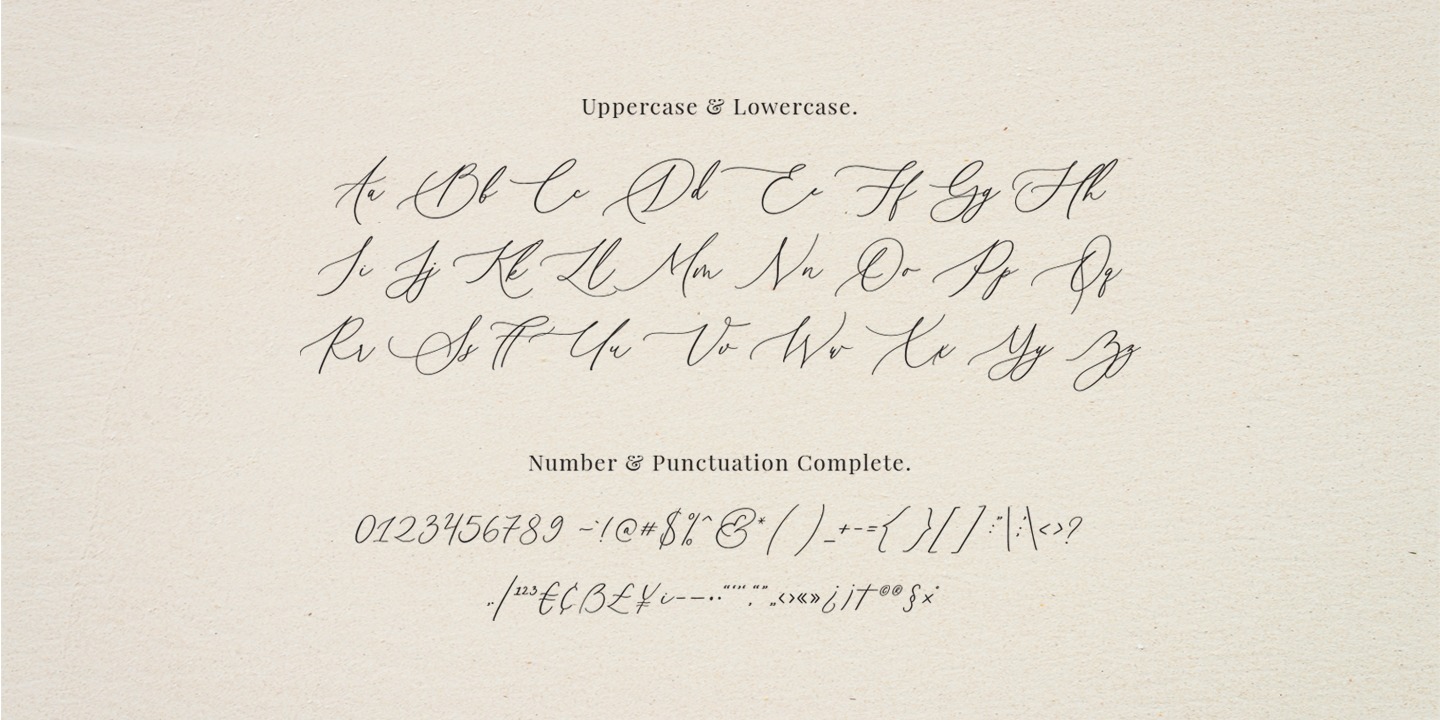 Uppercase & Lowercase.
Aa Bb Cc Dd Ee Ff Gg Hh
Ii Jj Kk Ll Mm Nn Oo Pp Qq
Rr Ss Tt Uu Vv Ww Xx Yy Zz
Number & Punctuation Complete.
0123456789 ~`!@#$%^&*( )_+-={ }[ ] :"|;'\<>?
,./¹²³€¢ß£¥